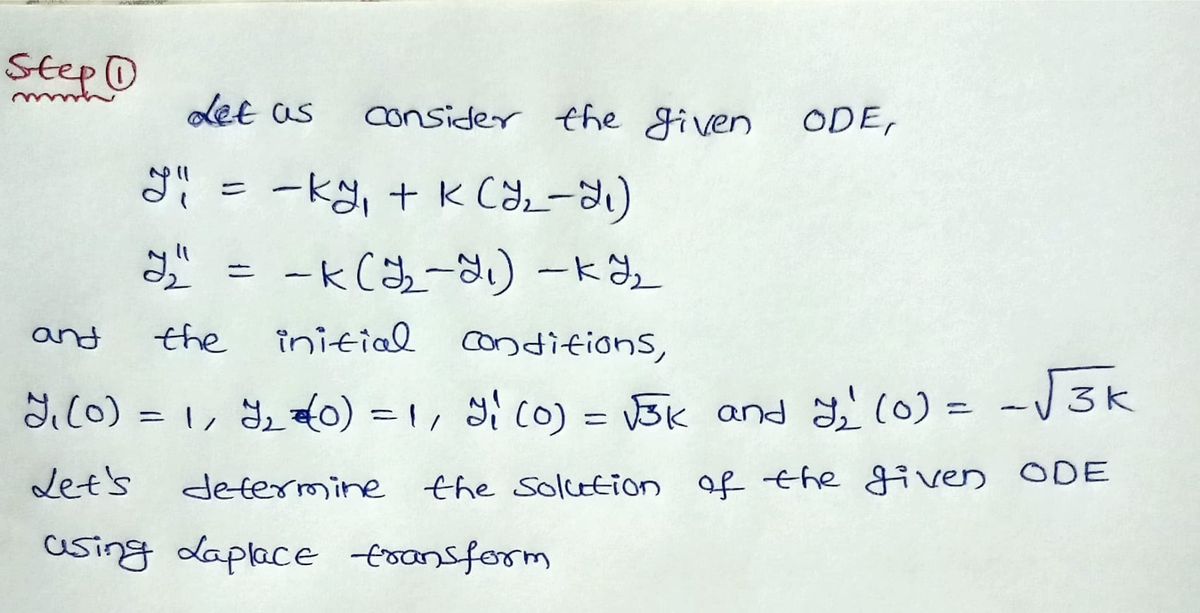 Step ①
Let us consider the given ODE,
y₁'' = -ky₁ + k(y₂-y₁)
y₂'' = -k(y₂-y₁) -ky₂
and the initial conditions,
y₁(0) = 1, y₂(0) = 1, y₁'(0) = √3k and y₂'(0) = -√3k
Let's determine the solution of the given ODE
using Laplace transform